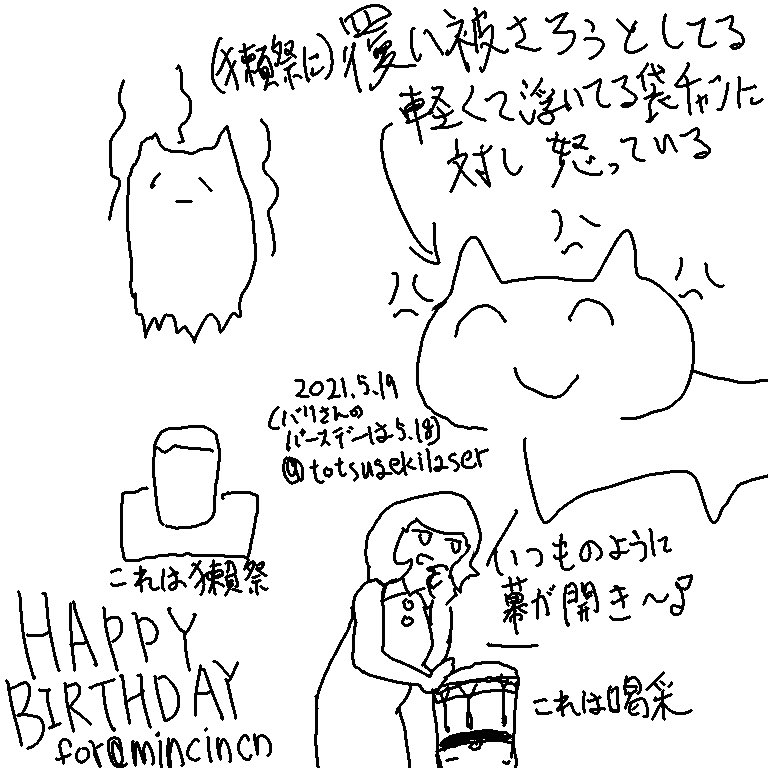 (獺祭に)覆い被さろうとしてる
軽くて浮いてる袋チャンに
対し 怒っている
2021.5.19
(バリさんの
バースデーは5.18)
@totsugekilaser
これは獺祭
いつものように
幕が開き〜♪
これは喝采
HAPPY
BIRTHDAY
for@mincincn